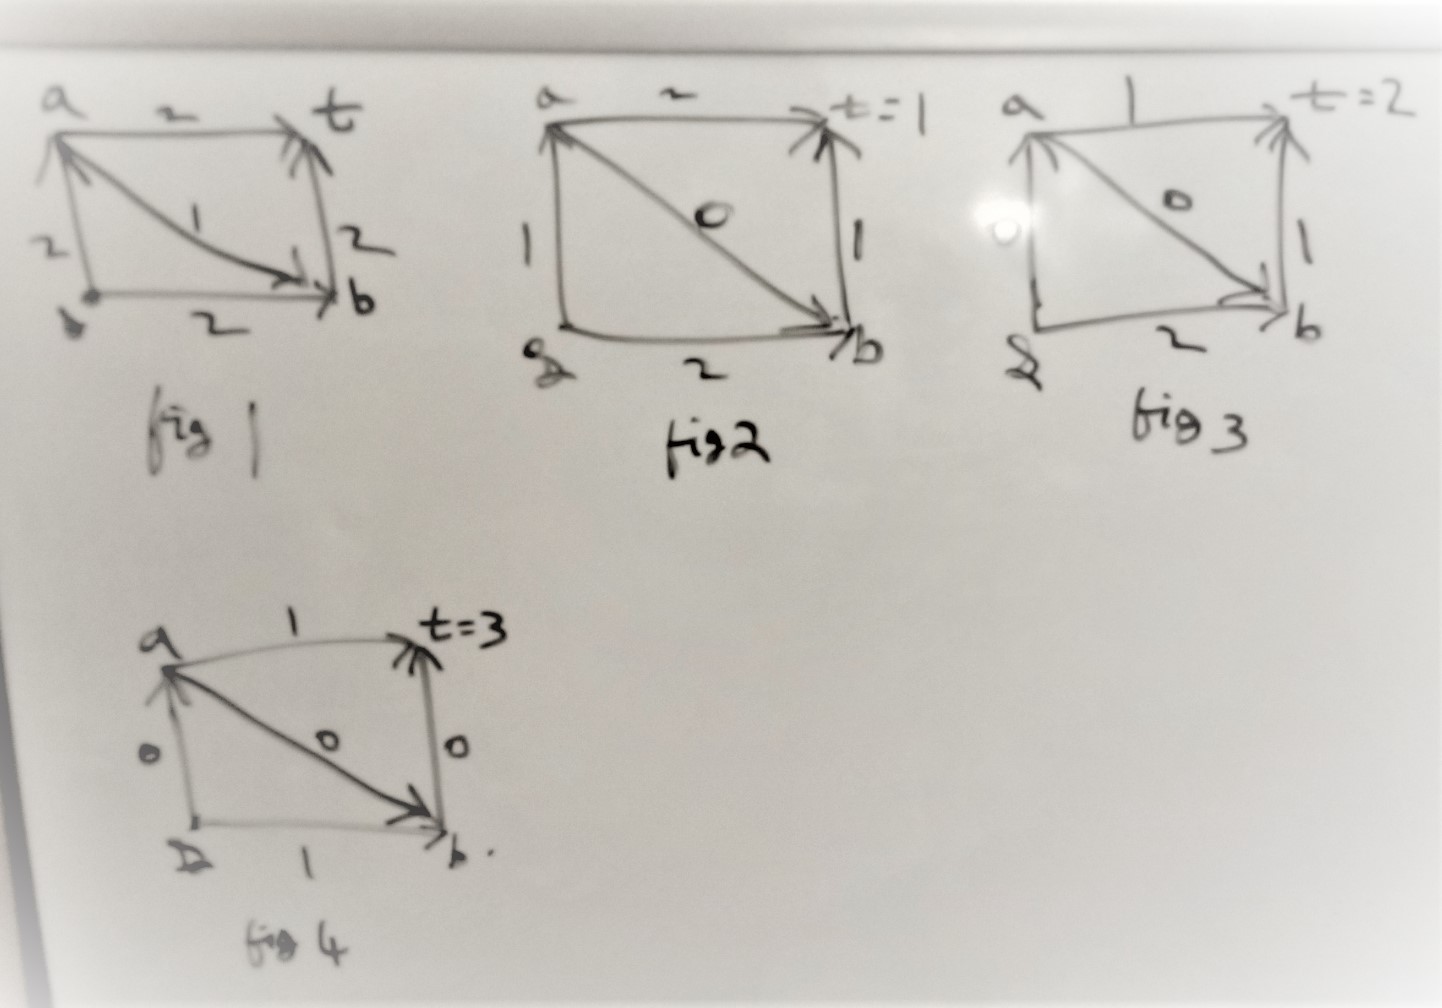 a 2 t
2 1 2
2 b
fig 1
a 2 t=1
1 0 1
s 2 b
fig 2
a 1 t=2
0 0 1
s 2 b
fig 3
a 1 t=3
0 0 0
s 1 b.
fig 4